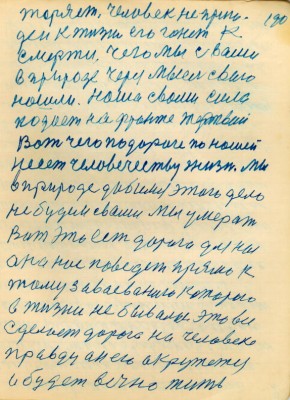 теряет, человек не приго- 190
ден к жизни его гонет к
смерти, чего мы с вами
в природе через мысел свою
нашли. Наша с вами сила
подает на фронте жертвой
Вот чего по дороге по нашей
несет человечеству жизн. мы
в природе добьемся этого дело
не будем с вами мы умерат
Вот это ест дорога для нас
она нас поведет прямо к
тому завоеваному которого
в жизни не бывало это все
сделает дорога на человека
правду он его окружет
и будет вечно жить